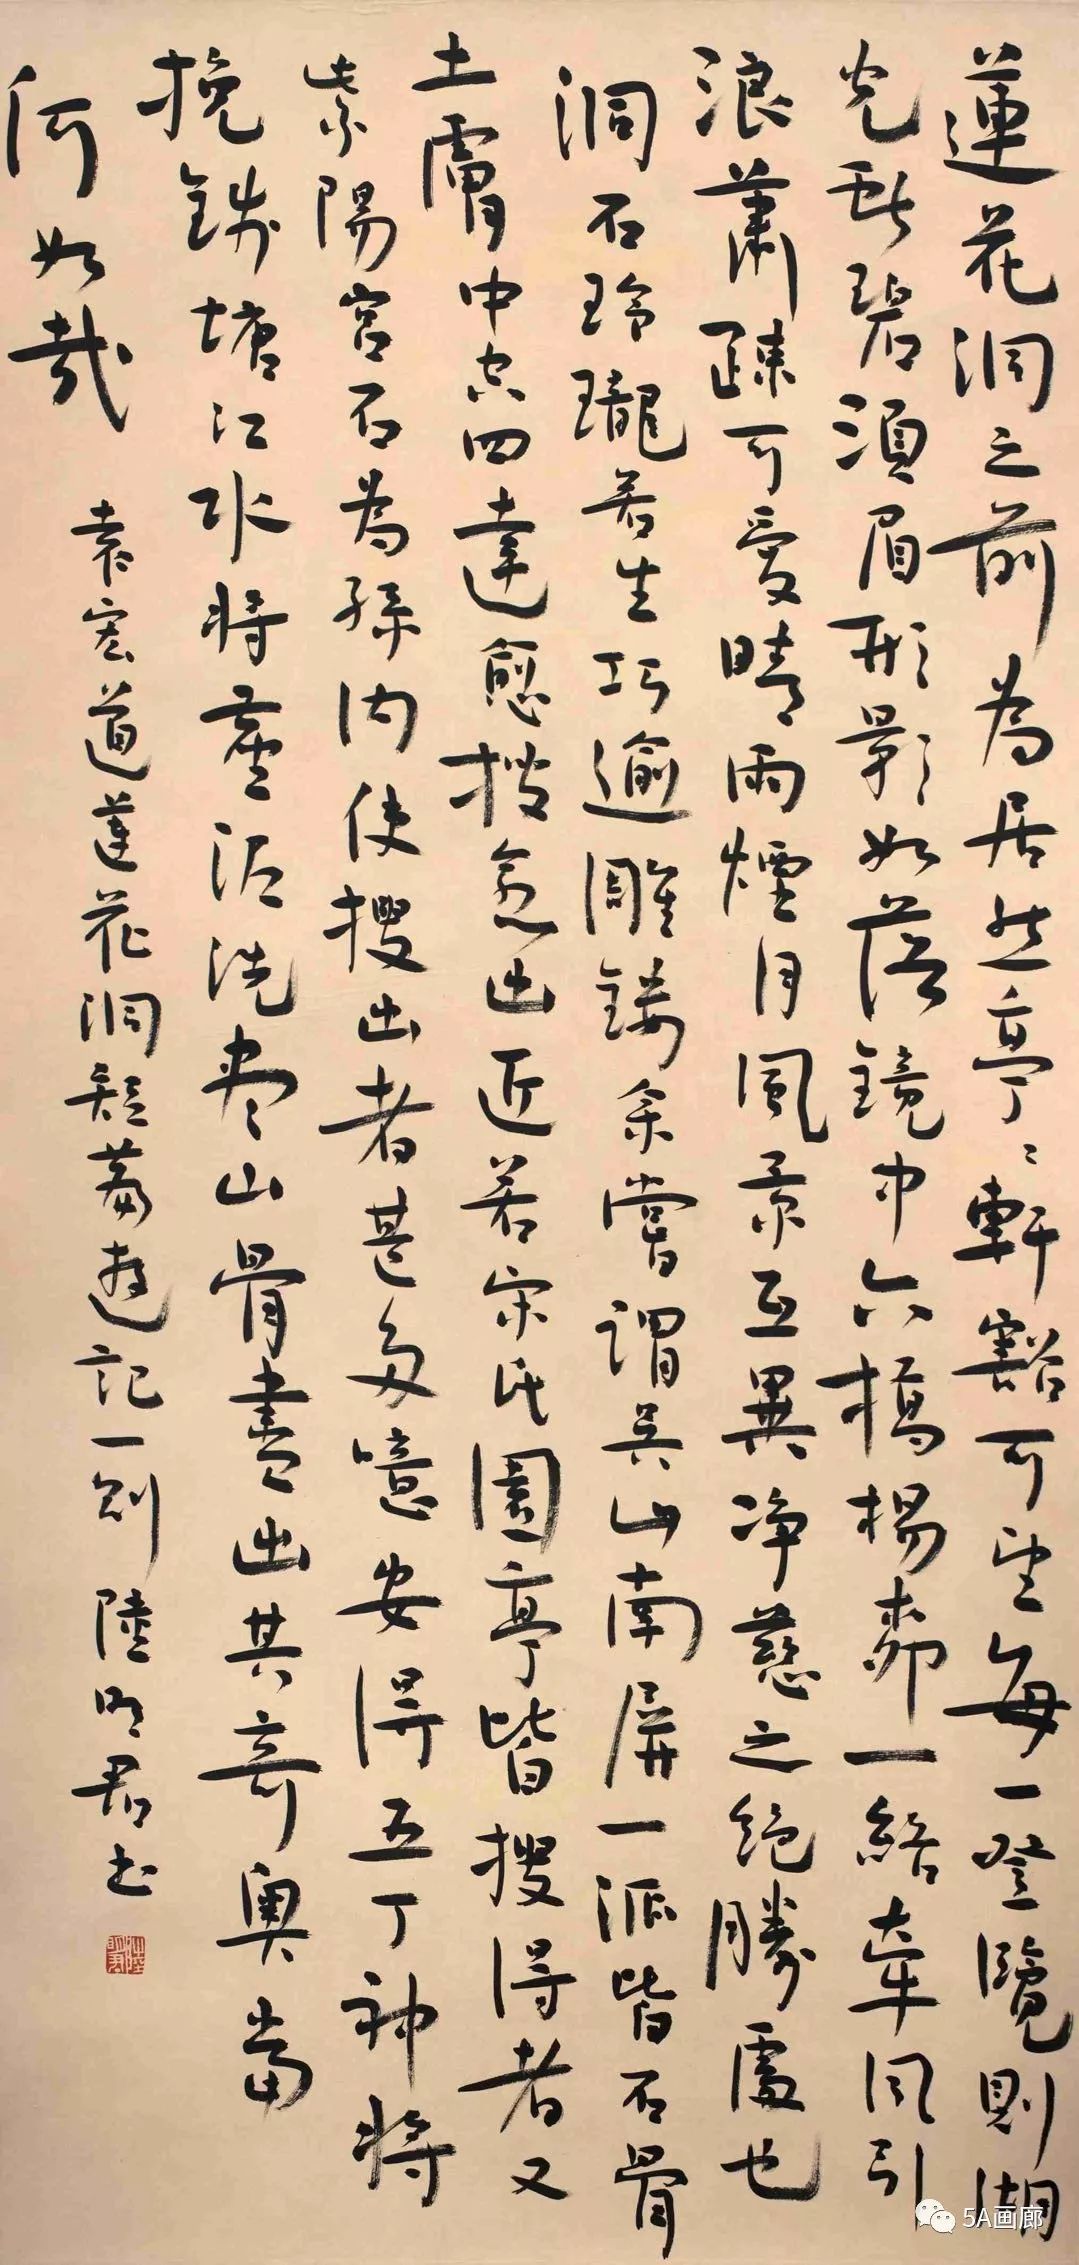 蓮花洞之前為居然亭〻軒豁可望每一登覽則湖
光献碧須眉形影如落鏡中六橋楊柳一絡牽風引
浪蕭疎可愛晴雨煙月風景互異净慈之絕勝處也
洞石玲瓏若生巧逾雕鏤余嘗謂吳山南屏一派皆石骨
土膚中空四達愈搜愈出近若宋氏園亭皆搜得者又
紫陽宮石為孫內使搜出者甚多噫安得五丁神將
挽錢塘江水將塵泥洗尽山骨盡出其奇奧當
何如哉
袁宏道蓮花洞短篇遊記一則 陸明君書
陸明君
5A画廊